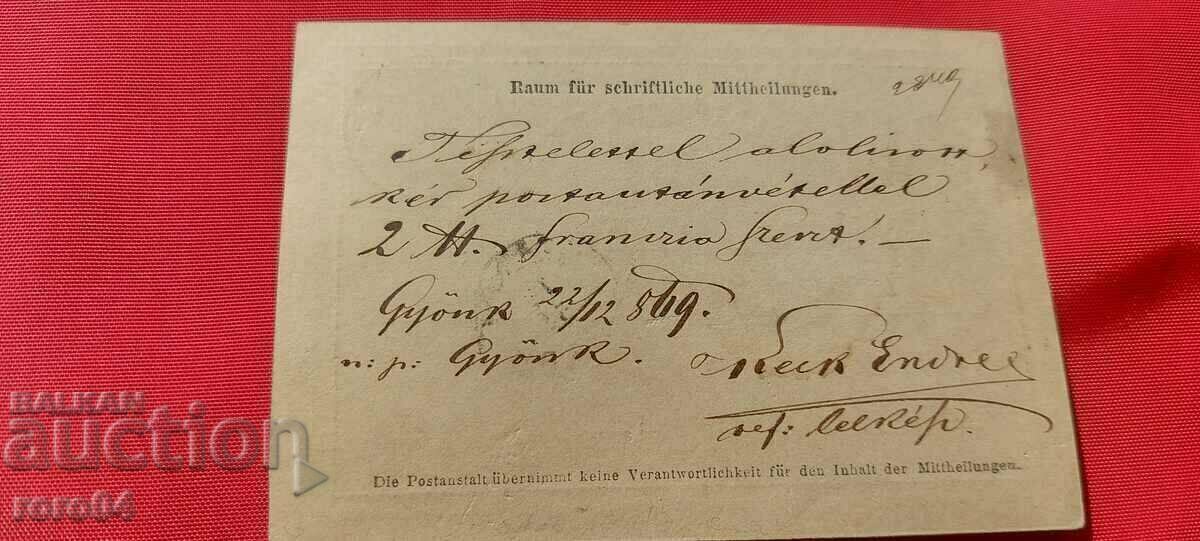 Raum für schriftliche Mittheilungen.
Tisztelettel alolirott
kér postautánvétellel
2 franczia
Gyönk 22/12 869.
n: p: Gyönk. Keck Endre
ref: lelkész.
Die Postanstalt übernimmt keine Verantwortlichkeit für den Inhalt der Mittheilungen.
BALKAN
auction
roro04